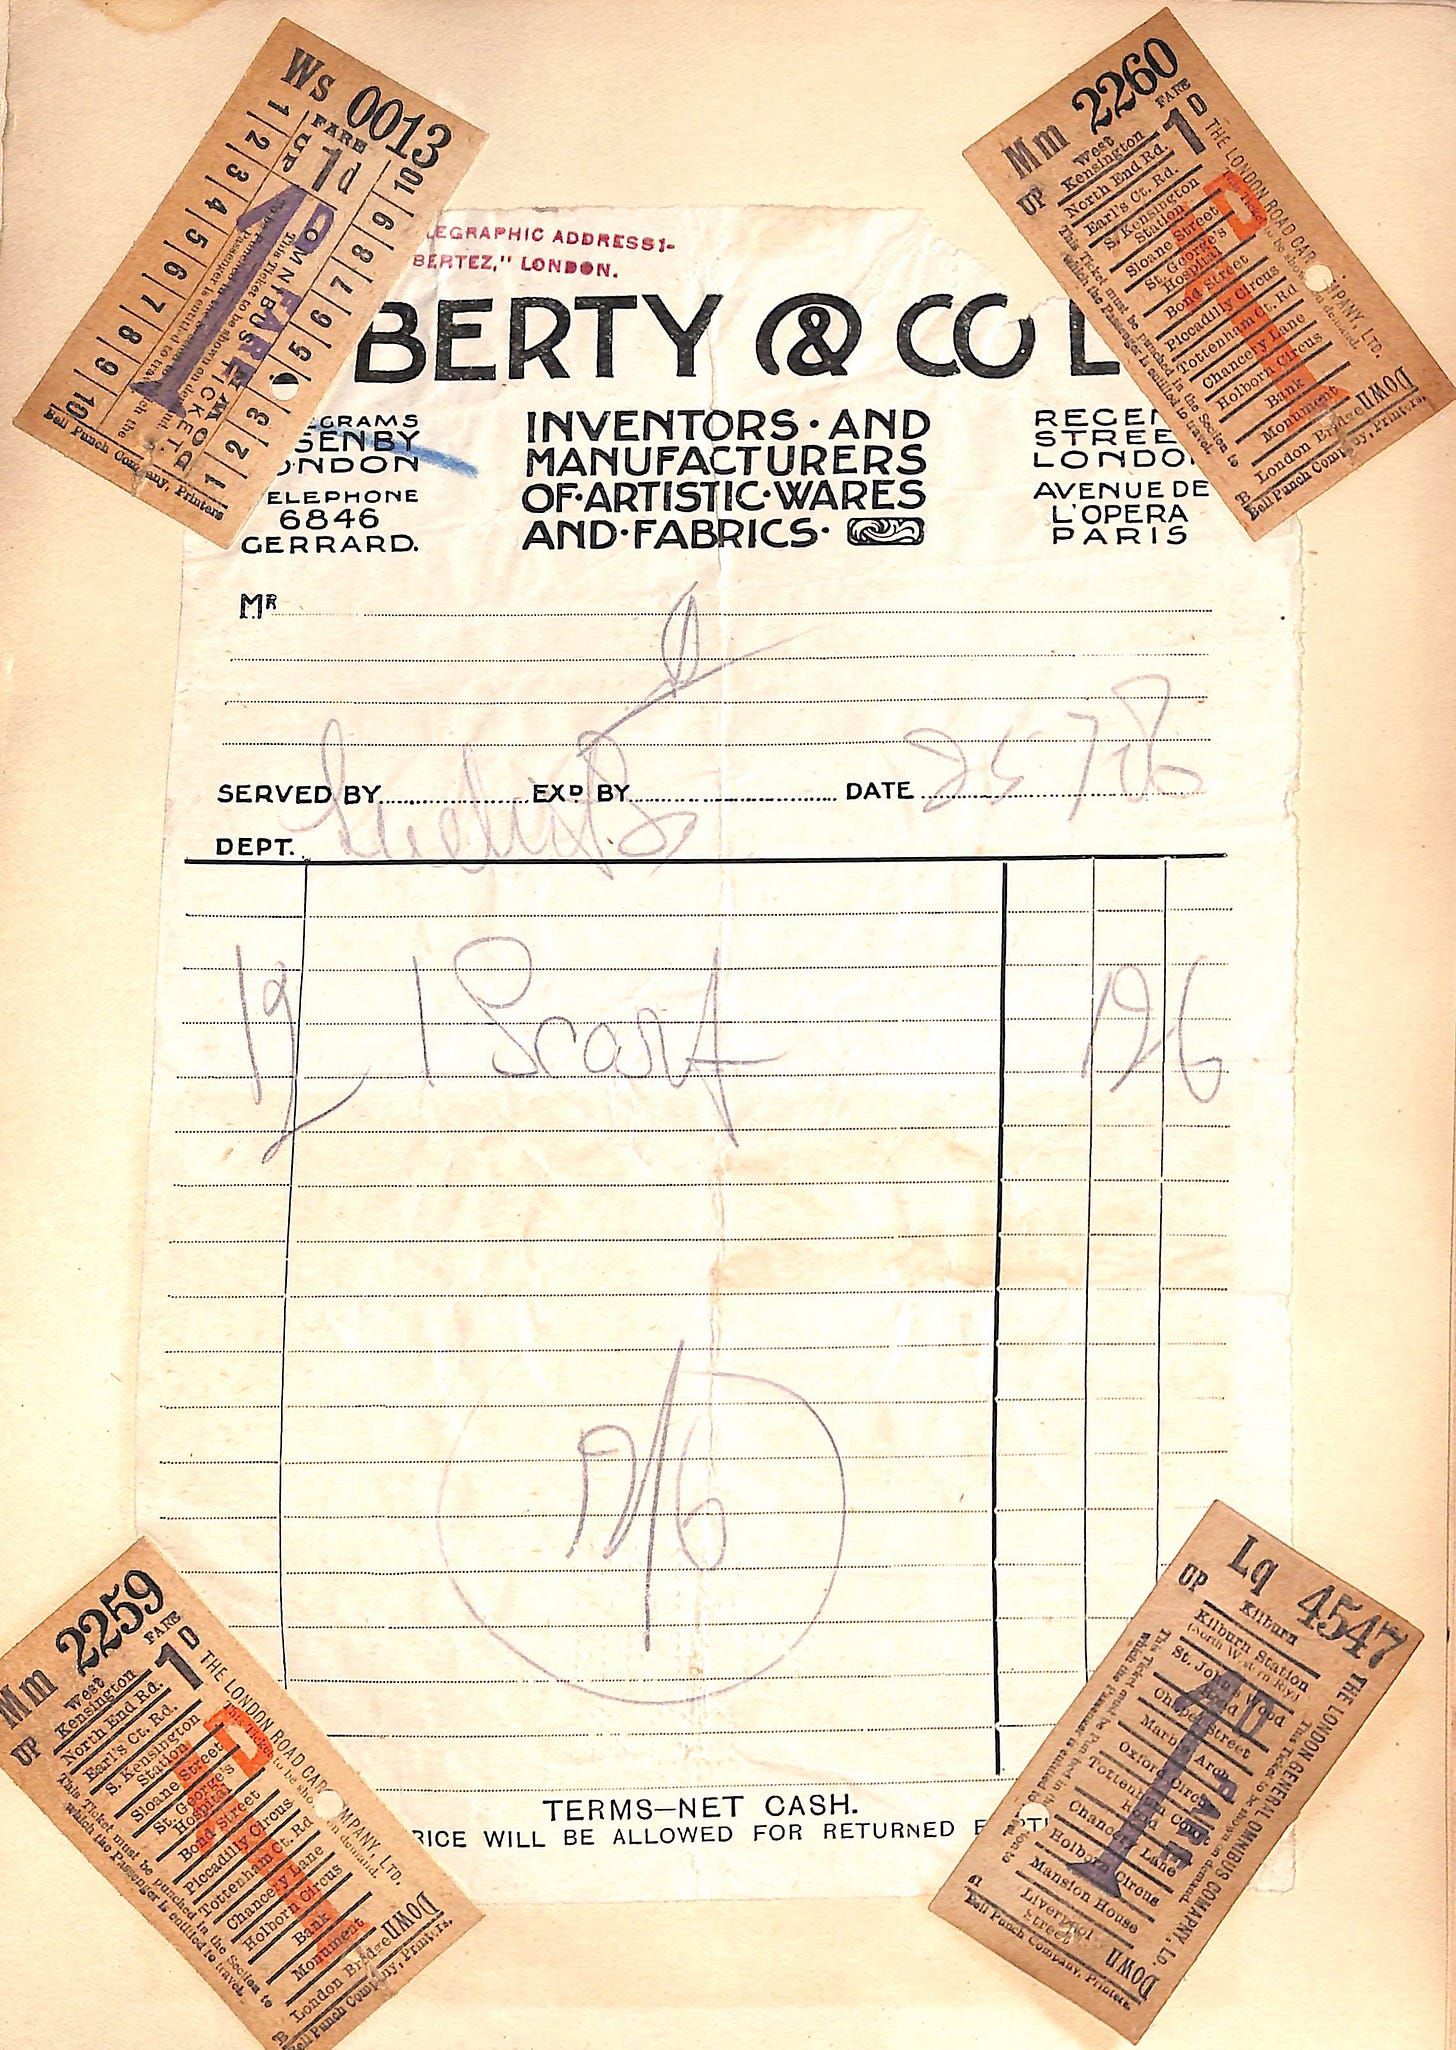 Ws 0013
FARE
UP 1d
1 2 3 4 5 6 7 8 9 10
10 9 8 7 6 5 3 2 1
OMNIBUS TICKET.
FARE
1
Bell Punch Company, Printers
Mm 2260
FARE
1D
UP
West Kensington
North End Rd.
Earl's Ct. Rd.
S. Kensington Station
Sloane Street
St. George's Hospital
Bond Street
Piccadilly Circus
Tottenham Ct. Rd
Chancery Lane
Holborn Circus
Bank
Monument
London Bridge
DOWN
THE LONDON ROAD CAR MPANY, LTD.
This Ticket must be punched in the Section to
which the Passenger is entitled to travel.
B Bell Punch Comp y, Printers.
EGRAPHIC ADDRESS:-
BERTEZ," LONDON.
BERTY & CO L
GRAMS
SENBY
ONDON
ELEPHONE
6846
GERRARD.
INVENTORS·AND
MANUFACTURERS
OF·ARTISTIC·WARES
AND·FABRICS·
REGEN
STREE
LONDO
AVENUE DE
L'OPERA
PARIS
MR
SERVED BY EXD BY DATE 25 7 06
DEPT.
12 1 19 6
19/6
TERMS—NET CASH.
RICE WILL BE ALLOWED FOR RETURNED E
Mm 2259
FARE
1D
UP
West Kensington
North End Rd.
Earl's Ct. Rd.
S. Kensington Station
Sloane Street
St. George's Hospital
Bond Street
Piccadilly Circus
Tottenham Ct. Rd
Chancery Lane
Holborn Circus
Bank
Monument
London Bridge
DOWN
THE LONDON ROAD CAR MPANY, LTD.
This Ticket must be punched in the Section to
which the Passenger is entitled to travel.
B Bell Punch Company, Printers.
Lq 4547
UP
Kilburn
Kilburn Station
(North West'rn Rly).
St. John's Wood Road
Chapel Street
Marble Arch
Oxford Circ
Tottenham Court Road
Chancery Lane
Holborn Circus
Mansion House
Liverpool Street
DOWN
1 FARE
THE LONDON GENERAL OMNIBUS COMAPNY, LD.
This Ticket to be shown on demand.
Bell Punch Company, Printers.